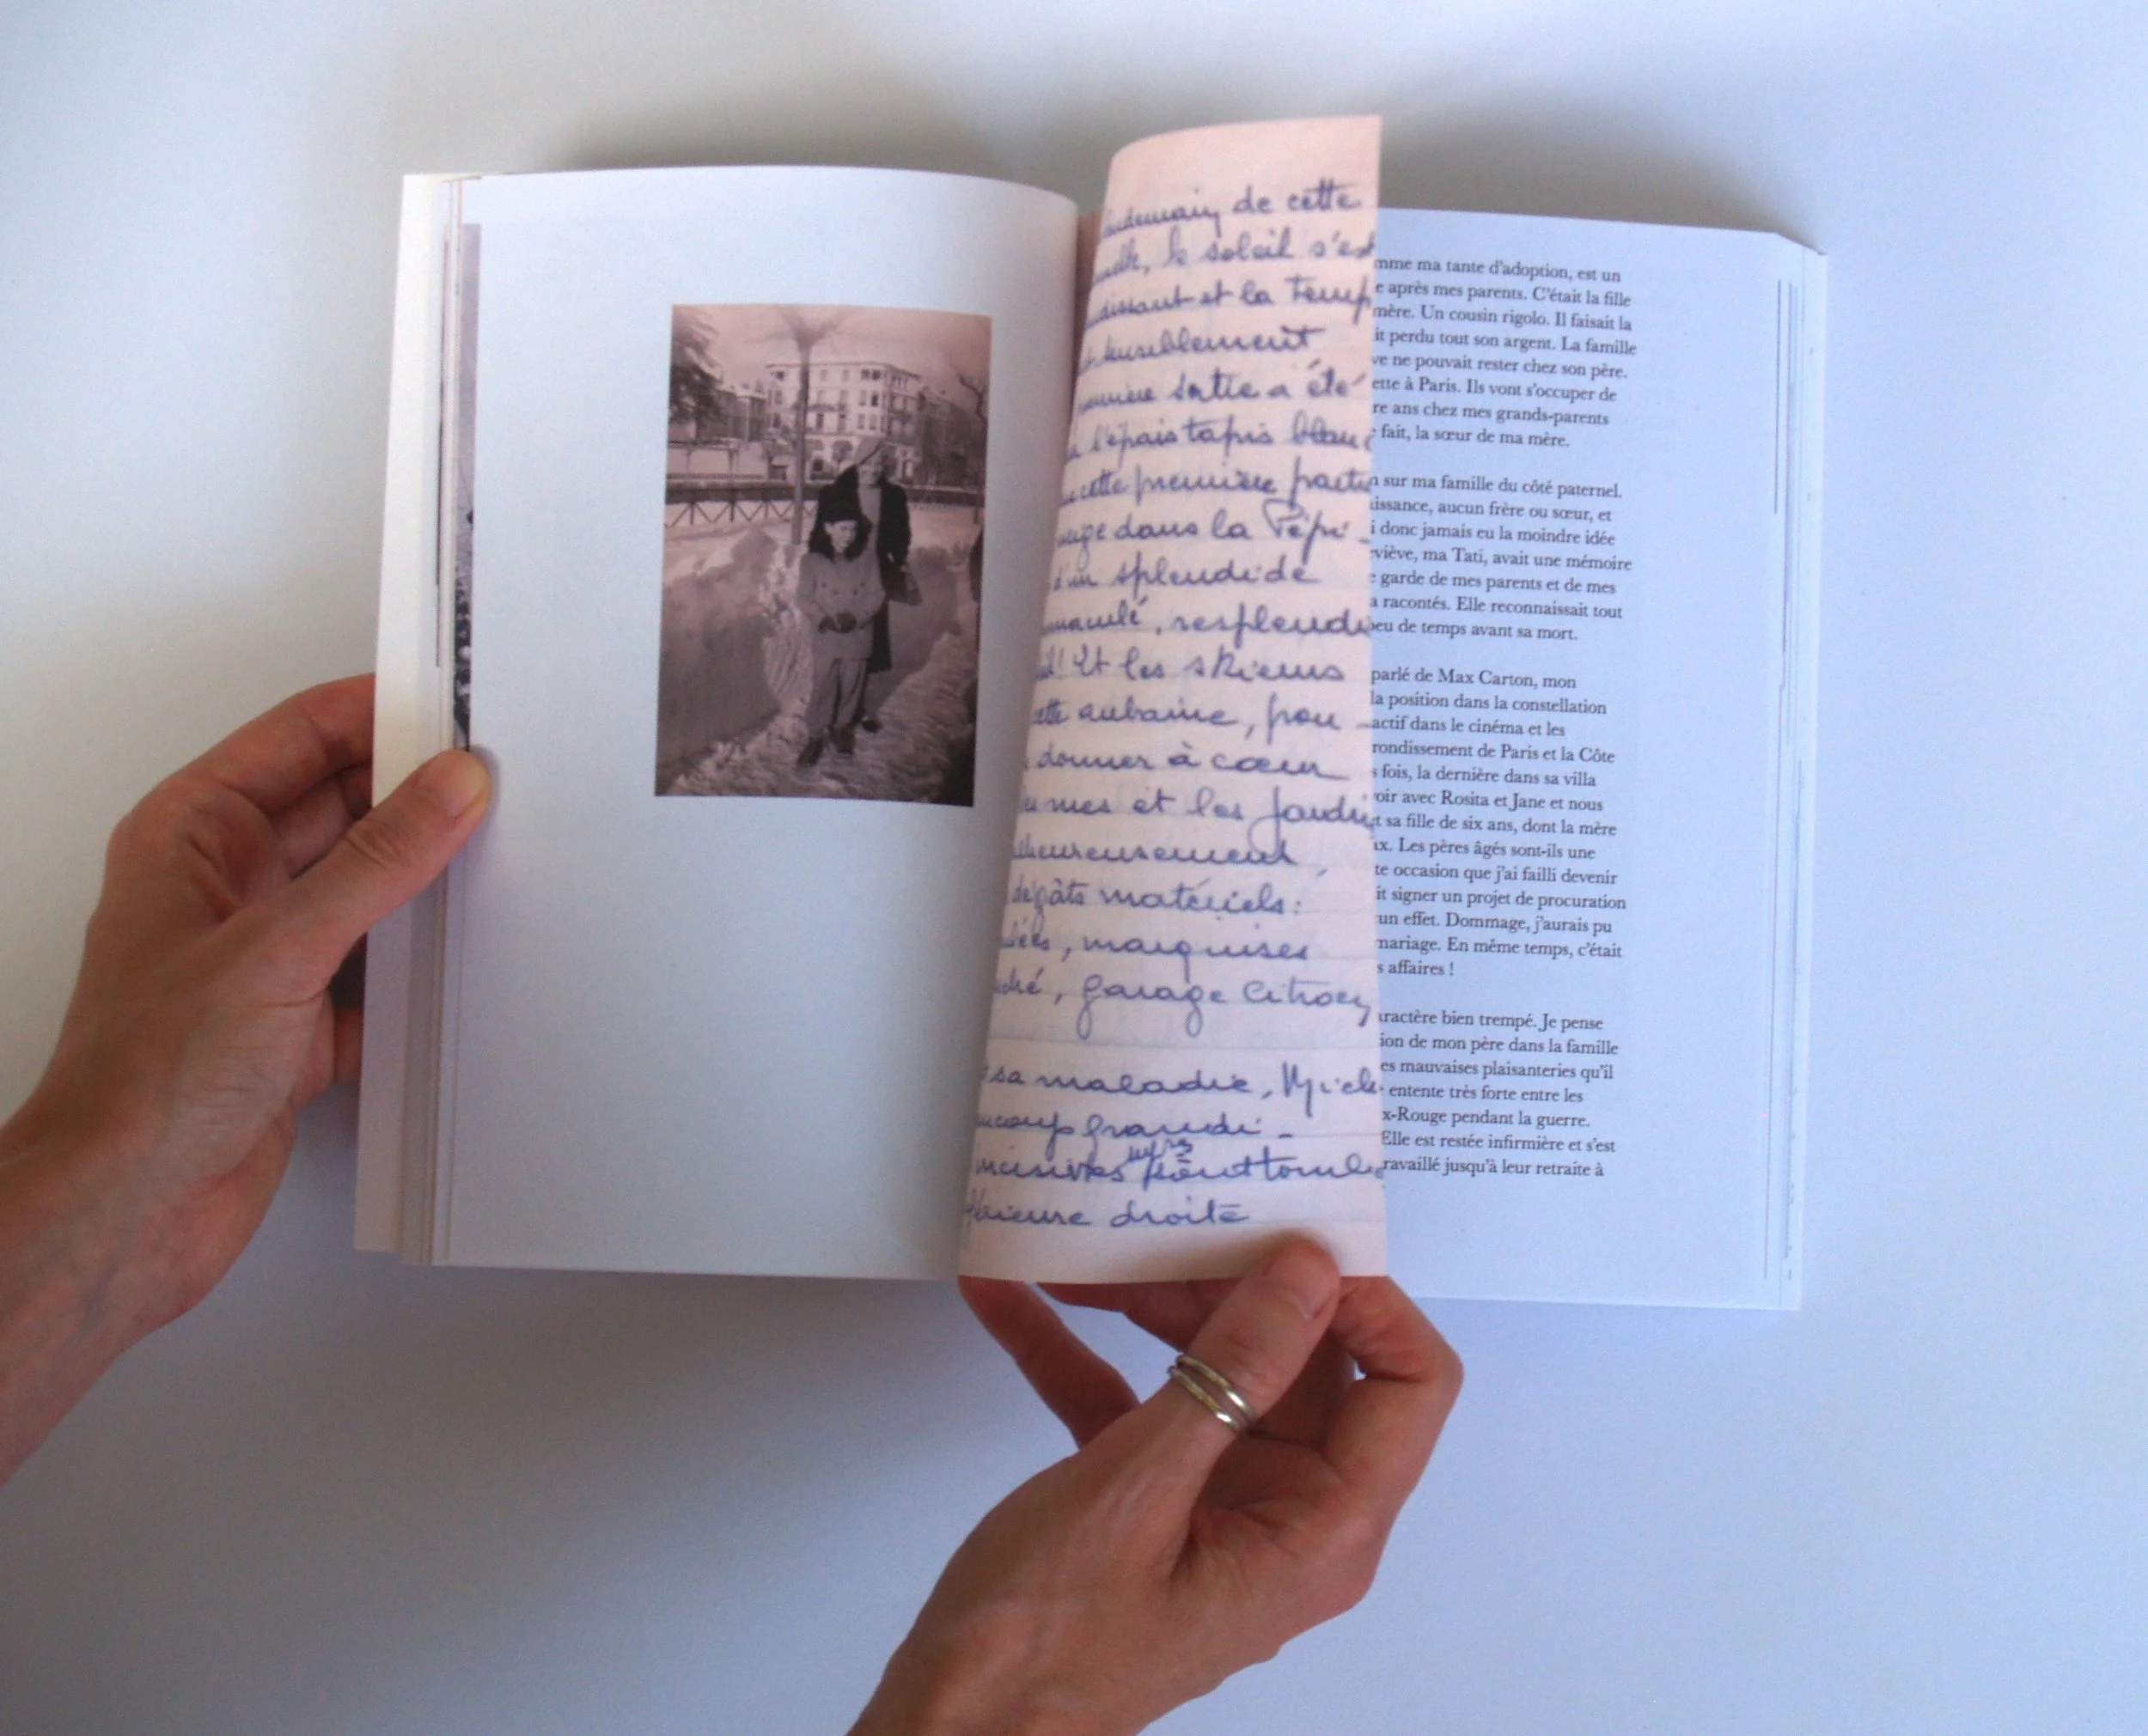 de cette
le soleil s'est
et la Temp
sensiblement
sortie a été
l'épais tapis blanc
cette première partie
dans la Pépi-
d'un splendide
resplendi
! Et les skieurs
cette aubaine, pou-
donner à cœur
et les jardin
dégâts matériels:
, marquises
, garage Citroen
sa maladie, Mich
grandi-
incisives tombe
droite
mme ma tante d'adoption, est un
e après mes parents. C'était la fille
mère. Un cousin rigolo. Il faisait la
it perdu tout son argent. La famille
ve ne pouvait rester chez son père.
ette à Paris. Ils vont s'occuper de
re ans chez mes grands-parents
fait, la sœur de ma mère.
n sur ma famille du côté paternel.
issance, aucun frère ou sœur, et
i donc jamais eu la moindre idée
viève, ma Tati, avait une mémoire
e garde de mes parents et de mes
a racontés. Elle reconnaissait tout
peu de temps avant sa mort.
parlé de Max Carton, mon
la position dans la constellation
actif dans le cinéma et les
rondissement de Paris et la Côte
s fois, la dernière dans sa villa
oir avec Rosita et Jane et nous
t sa fille de six ans, dont la mère
ax. Les pères âgés sont-ils une
te occasion que j'ai failli devenir
it signer un projet de procuration
un effet. Dommage, j'aurais pu
mariage. En même temps, c'était
s affaires !
aractère bien trempé. Je pense
ion de mon père dans la famille
es mauvaises plaisanteries qu'il
entente très forte entre les
x-Rouge pendant la guerre.
Elle est restée infirmière et s'est
ravaillé jusqu'à leur retraite à